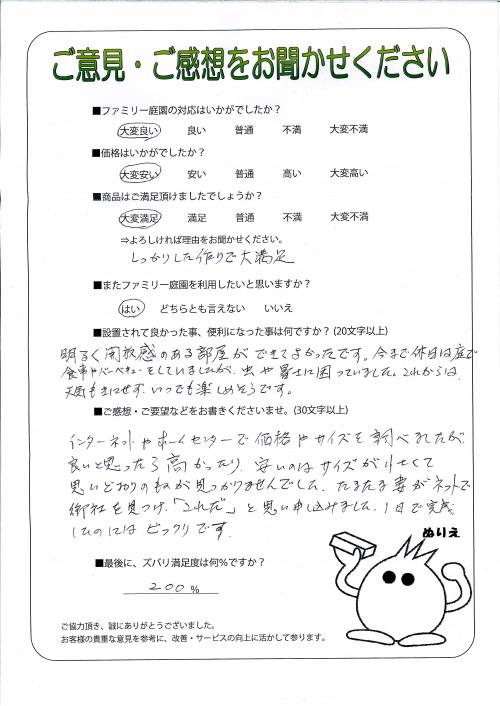 ご意見・ご感想をお聞かせください
■ファミリー庭園の対応はいかがでしたか？
大変良い 良い 普通 不満 大変不満
■価格はいかがでしたか？
大変安い 安い 普通 高い 大変高い
■商品はご満足頂けましたでしょうか？
大変満足 満足 普通 不満 大変不満
⇒よろしければ理由をお聞かせください。
しっかりした作りで大満足
■またファミリー庭園を利用したいと思いますか？
はい どちらとも言えない いいえ
■設置されて良かった事、便利になった事は何ですか？(20文字以上)
明るく開放感のある部屋ができてよかったです。今まで休日は庭で
食事やバーベキューをしていましたが、虫や暑さに困っていました。これからは、
天気も気にせず、いつでも楽しめそうです。
■ご感想・ご要望などをお書きくださいませ。(30文字以上)
インターネットやホームセンターで価格やサイズを調べましたが
良いと思ったら高かったり、安いのはサイズが小さくて
思いどおりのものが見つかりませんでした。たまたま妻がネットで
御社を見つけ、「これだ」と思い申し込みました。1日で完成
したのにはビックリです。
■最後に、ズバリ満足度は何%ですか？
200 %
ぬりえ
ご協力頂き、誠にありがとうございました。
お客様の貴重な意見を参考に、改善・サービスの向上に活かして参ります。